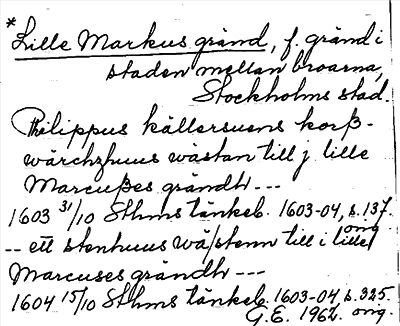 * Lille Markus gränd, f. gränd i
staden mellan broarna,
Stockholms stad.
Philippus källersuens korß-
wärchzhuus wästan till j lille
Marcußes grändh ---
1603 31/10 Sthms tänkeb. 1603-04, s. 137.
orig.
-- ett stenhuus wä/stenn till i lille
Marcuses grändh ---
1604 15/10 Sthms tänkeb. 1603-04 s. 325.
G.E. 1962. orig.